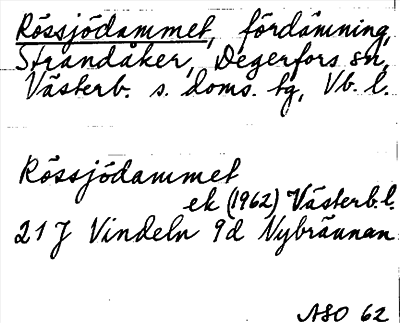 Rössjödammet, fördämning,
Strandåker, Degerfors sn,
Västerb. s. doms. tg, Vb. l.
Rössjödammet
ek (1962) Västerb.l.
21 J Vindeln 9d Nybrännan
ASO 62